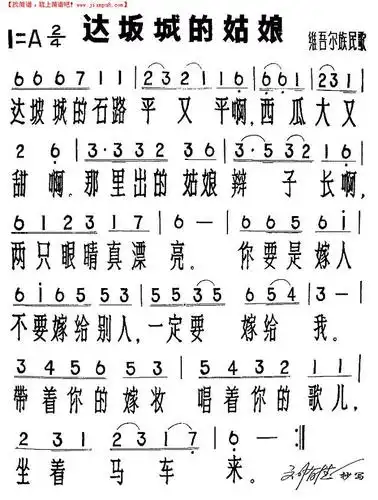 【找简谱,就上简谱吧! www.jianpu8.com】
1=A 2/4 达坂城的姑娘
维吾尔族民歌
6 6 6 7 1 1 | 2 3 2 1 1 6 | 6 6 1 2 3 1 |
达坡城的石路 平又平啊,西瓜大又
2 6 | 3·3 3 2 3 6 | 3·5 3 2 1 6 |
甜啊。那里出的姑娘辫子长啊,
6 1 2 3 1 7 | 6 — | 0 6 6 5 6 i |
两只眼睛真漂亮。你要是嫁人
6 i 6 5 5 3 | 5 3 5 5 | 6 5 4 | 3 — |
不要嫁给别人,一定要嫁给我。
3 4 5 6 5 3 | 2 3 1 | 5 4 3 2 1 1 |
带着你的嫁妆 唱着你的歌儿,
2 3 1 | 2 2 3 1 7 | 6 — :||
坐着马车来。
抄写